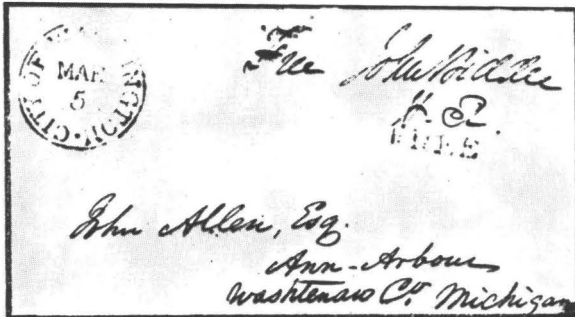 CITY OF WASHINGTON
MAR
5
Free John Biddle
H. R.
FREE
John Allen, Esq.
Ann-Arbour
Washtenaw Co. Michigan